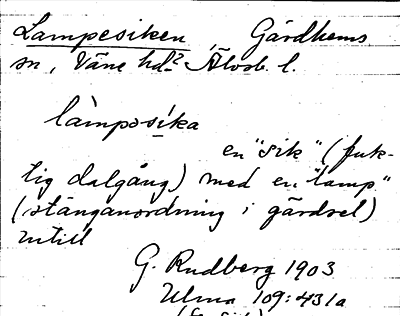 Lampesiken, Gärdhems
sn, Väne hd. Älvsb. l.
làmpəsi̱ka
en "sik" (fuk-
tig dalgång) med en "lamp"
(stånganordning i gärdsel)
intill
G. Rudberg 1903
Ulma 109:431a